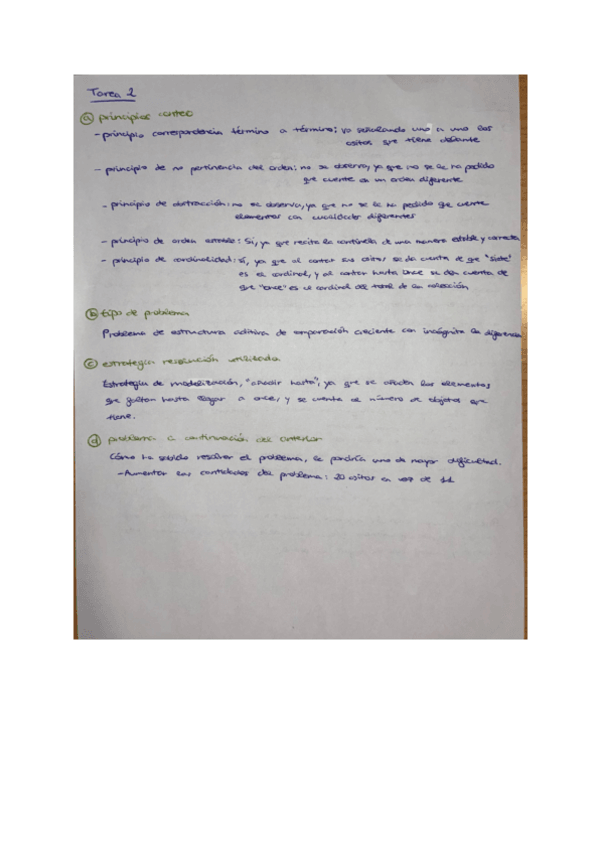 Tarea 2
a) principios conteo
- principio correspondencia término a término: va señalando uno a uno los
ositos que tiene delante
- principio de no pertinencia del orden: no se observa, ya que no se le ha pedido
que cuente en un orden diferente
- principio de abstracción: no se observa, ya que no se le ha pedido que cuente
elementos con cualidades diferentes
- principio de orden estable: Sí, ya que recita la cantinela de una manera estable y correcta
- principio de cardinalidad: Sí, ya que al contar sus ositos se da cuenta de que "siete"
es el cardinal, y al contar hasta once se da cuenta de
que "once" es el cardinal del total de la colección
b) tipo de problema
Problema de estructura aditiva de comparación creciente con incógnita la diferencia
c) estrategia resolución utilizada
Estrategia de modelización, "añadir hasta", ya que se añaden los elementos
que faltan hasta llegar a once, y se cuenta el número de objetos que
tiene.
d) problema a continuación del anterior
Cómo ha sabido resolver el problema, le pondría uno de mayor dificultad.
- Aumentar las cantidades del problema: 20 ositos en vez de 11